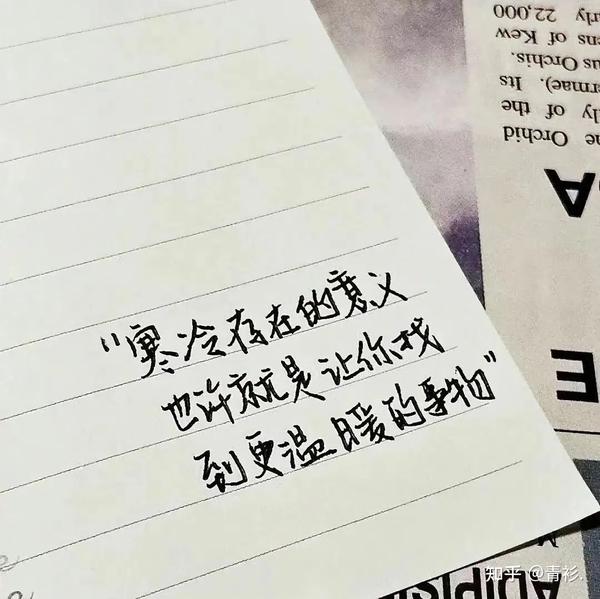 “寒冷存在的意义
也许就是让你找
到更温暖的事物”
rly 22,000
ens of Kew
us Orchis.
ermae). Its
ly of the
e Orchid
A
E
ADIPIS
知乎 @青衫.